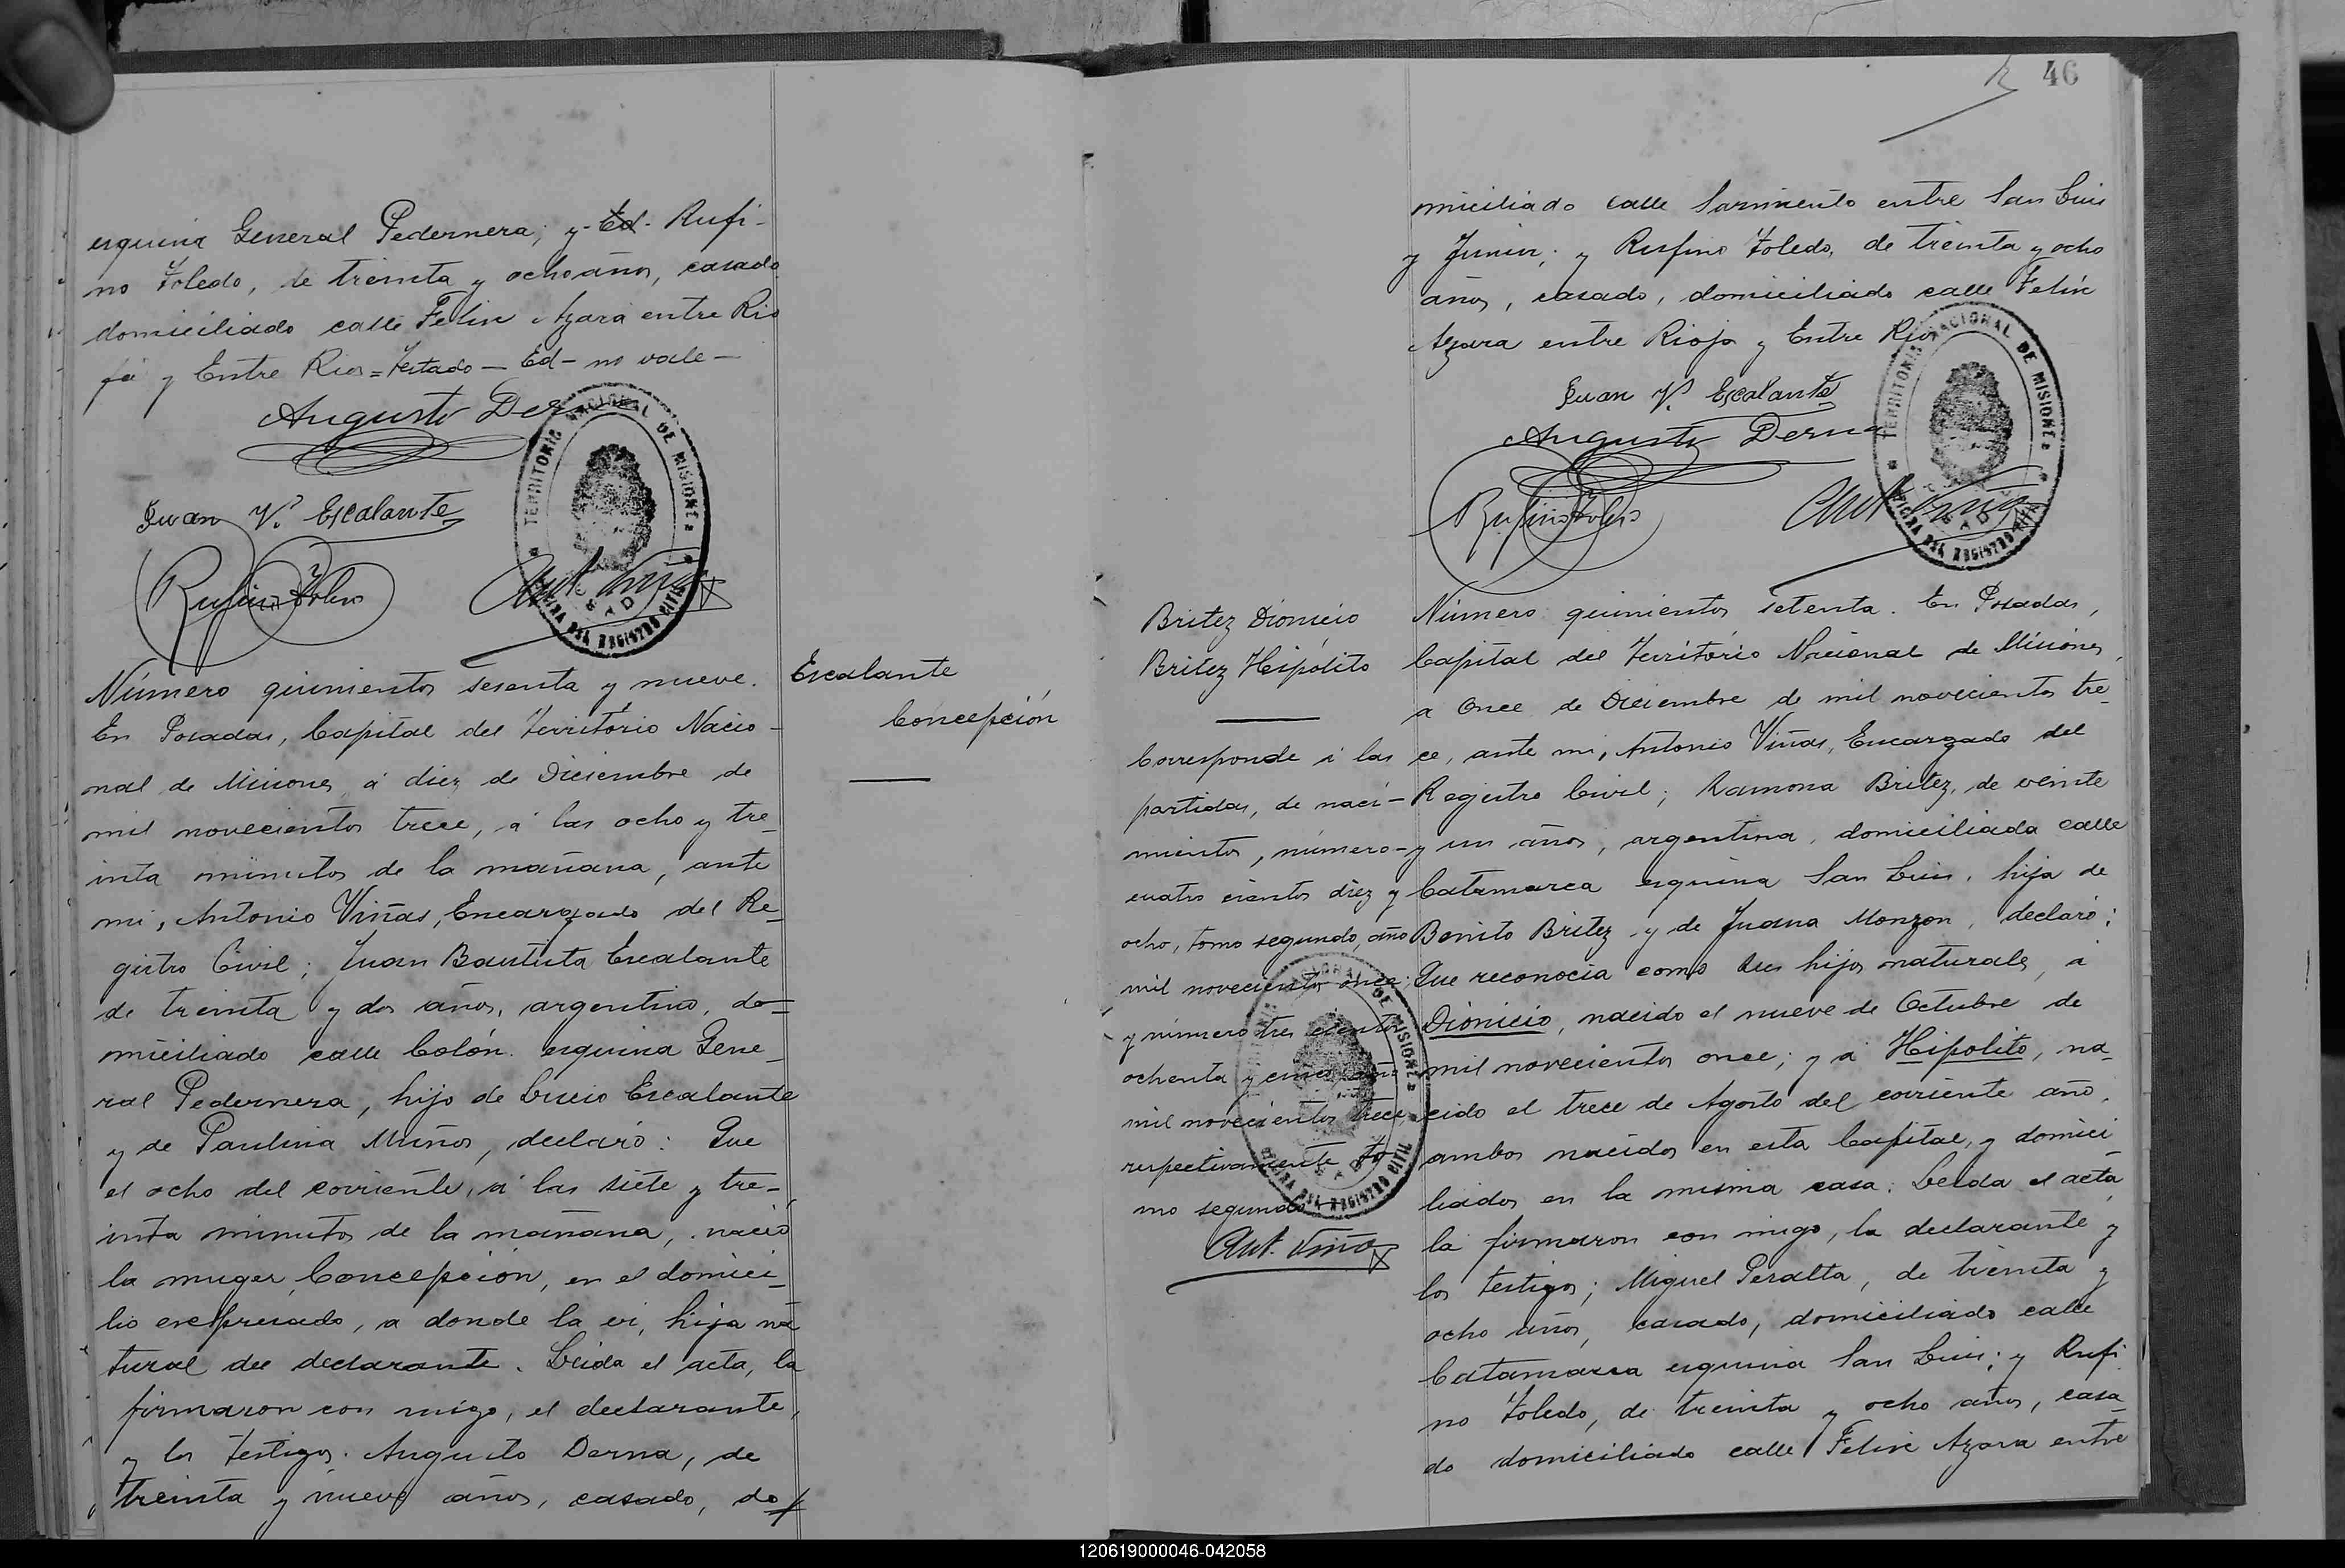 esquina General Pedernera; y Ed- Rufi-
no Toledo, de treinta y ocho años, casado
domiciliado calle Felix Azara entre Rio
ja y Entre Rios = Testado — Ed — no vale —
Augusto Derna
Juan V. Escalante
Rufino Toledo
Ant. Viñas
TERRITORIO NACIONAL DE MISIONES
OFICINA DEL REGISTRO CIVIL
Número quinientos sesenta y nueve.
En Posadas, Capital del Território Nacio-
nal de Misiones, á diez de Diciembre de
mil novecientos trece, á las ocho y tre-
inta minutos de la mañana, ante
mi, Antonio Viñas, Encargado del Re-
gistro Civil; Juan Bautista Escalante
de treinta y dos años, argentino, do-
miciliado calle Colón esquina Gene-
ral Pedernera, hijo de Lucio Escalante
y de Paulina Muños, declaró: Que
el ocho del corriente, á las siete y tre-
inta minutos de la mañana, nació
la muger Concepción, en el domici-
lio expresado, a donde la vi, hija na
tural del declarante. Leida el acta, la
firmaron con migo, el declarante,
y los testigos. Augusto Derna, de
treinta y nueve años, casado, do
Escalante
Concepción
46
miciliado calle Sarmiento entre San Luis
y Junin; y Rufino Toledo, de treinta y ocho
años, casado, domiciliado calle Felix
Azara entre Rioja y Entre Rios
Juan V. Escalante
Augusto Derna
Rufino Toledo
Ant. Viñas
TERRITORIO NACIONAL DE MISIONES
OFICINA DEL REGISTRO CIVIL
Britez Dionicio
Britez Hipólito
Corresponde á las
partidas, de naci-
mientos, número-
cuatro cientos diez y
ocho, tomo segundo, año
mil novecientos once;
y número tres cientos
ochenta y cinco año
mil novecientos trece,
respectivamente to
mo segundo
Ant. Viñas
TERRITORIO NACIONAL DE MISIONES
OFICINA DEL REGISTRO CIVIL
Número quinientos setenta. En Posadas,
Capital del Território Nacional de Misiones,
a once de Diciembre de mil novecientos tre-
ce, ante mi, Antonio Viñas, Encargado del
Registro Civil; Ramona Britez, de veinte
y un años, argentina, domiciliada calle
Catamarca esquina San Luis, hija de
Benito Britez y de Juana Monzon, declaró:
Que reconocía como sus hijos naturales, á
Dionicio, nacido el nueve de Octubre de
mil novecientos once; y á Hipólito, na-
cido el trece de Agosto del corriente año,
ambos nacidos en esta Capital, y domici
liados en la misma casa. Leida el acta,
la firmaron con migo, la declarante y
los testigos; Miguel Peralta, de treinta y
ocho años, casado, domiciliado calle
Catamarca esquina San Luis; y Rufi
no Toledo, de treinta y ocho años, casa-
do domiciliado calle Felix Azara entre
120619000046-042058